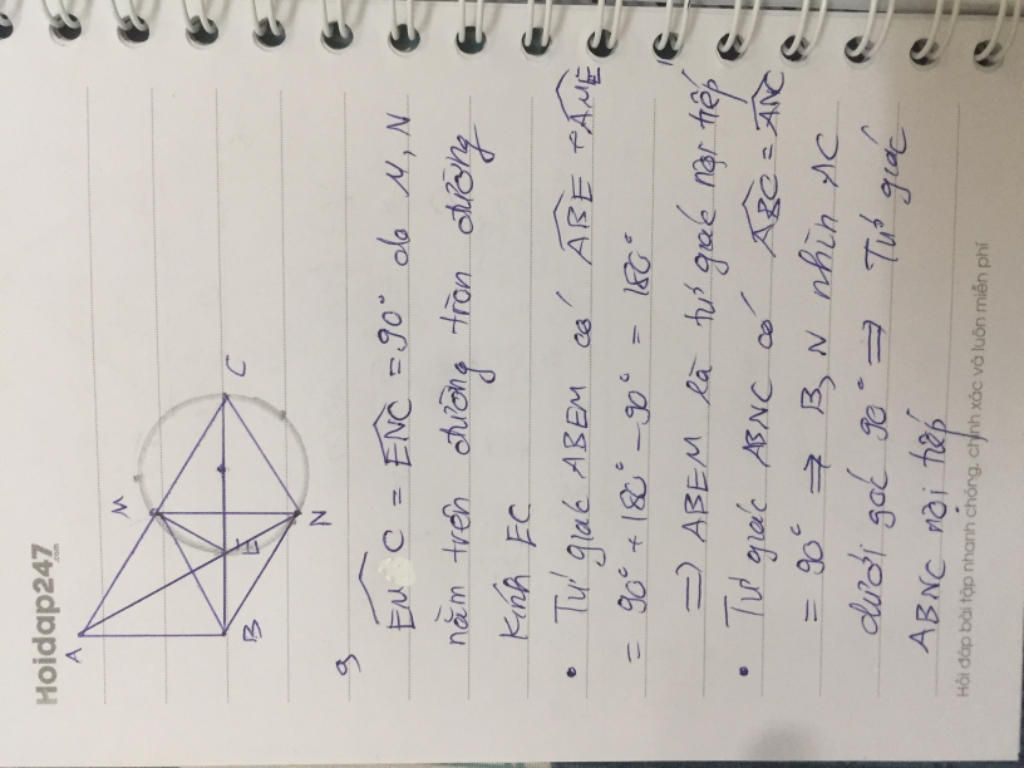 Hoidap247.com
A
M
B
E
C
N
a)
EMC = ENC = 90° do M, N
nằm trên đường tròn đường
kính EC
• Tứ giác ABEM có ABE + AME
= 90° + 180° - 90° = 180°
=> ABEM là tứ giác nội tiếp
• Tứ giác ABNC có ABC = ANC
= 90° => B, N nhìn AC
dưới góc 90° => Tứ giác
ABNC nội tiếp
Hỏi đáp bài tập nhanh chóng, chính xác và luôn miễn phí